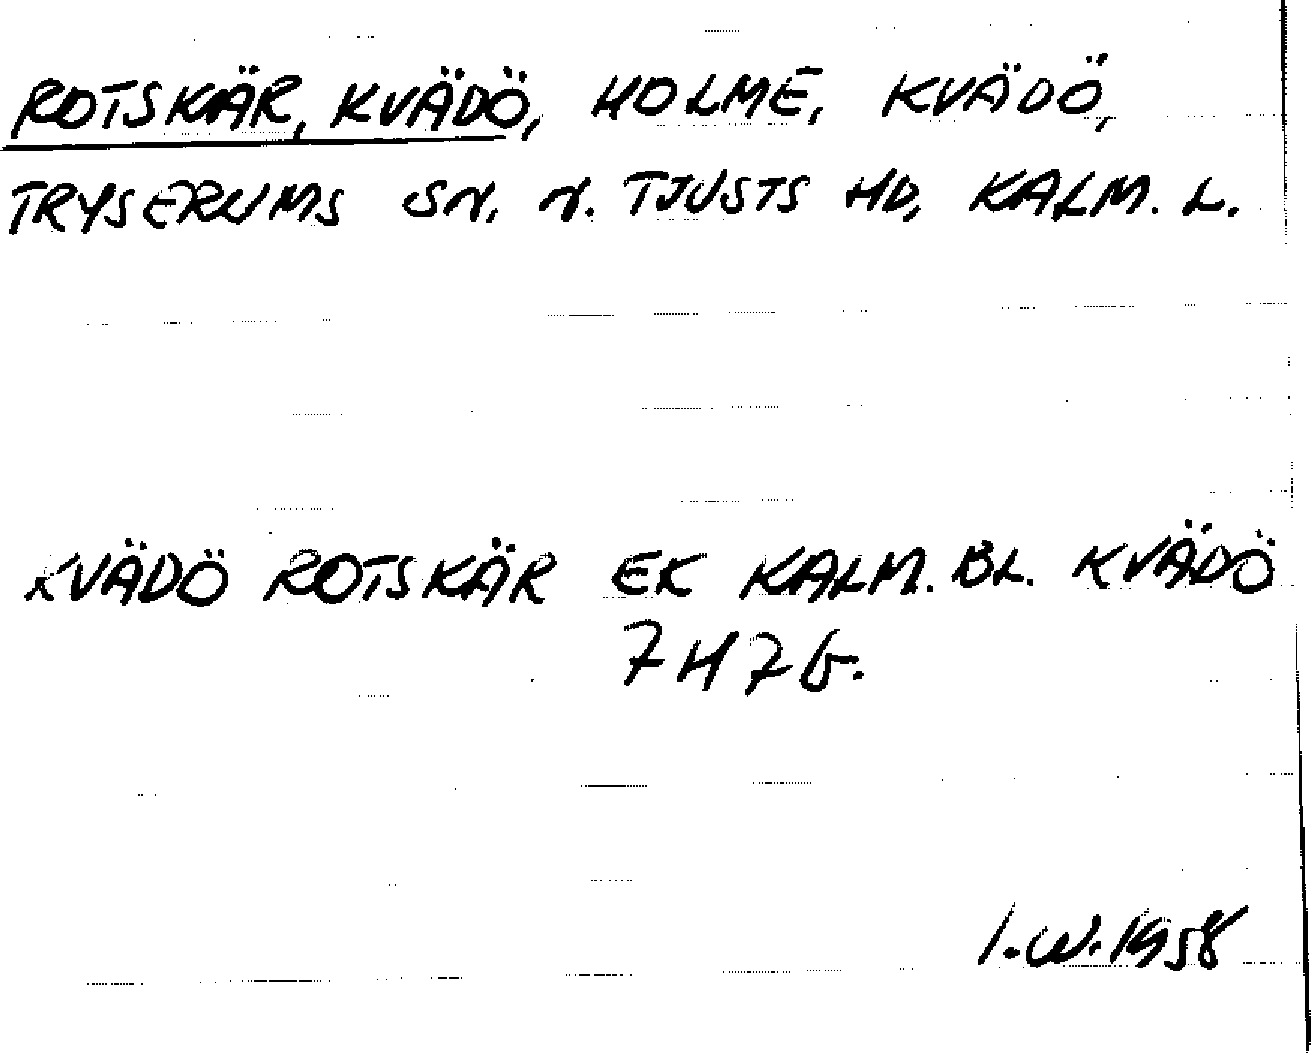 ROTSKÄR, KVÄDÖ, HOLME, KVÄDÖ,
TRYSERUMS SN. N. TJUSTS HD, KALM. L.
KVÄDÖ ROTSKÄR EK KALM. BL. KVÄDÖ
7H7G.
I.W. 1958